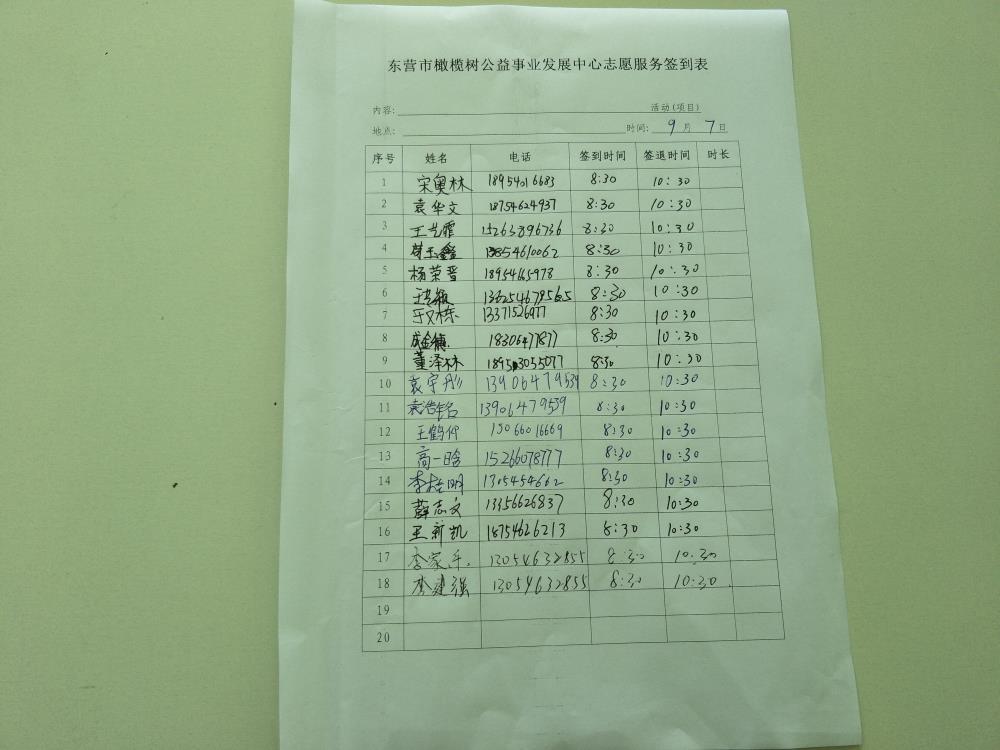 东营市橄榄树公益事业发展中心志愿服务签到表
内容: 活动(项目)
地点: 时间: 9月 7日
序号 姓名 电话 签到时间 签退时间 时长
1 宋奥林 18954016683 8:30 10:30
2 袁华文 18754624937 8:30 10:30
3 王艺霏 15263896736 8:30 10:30
4 玉鑫 13854610062 8:30 10:30
5 杨荣晋 18954665978 8:30 10:30
6 8:30 10:30
7 于又栋 13371526977 8:30 10:30
8 成金镇 18306477877 8:30 10:30
9 董泽林 18953055077 8:30 10:30
10 袁宇彤 13906479539 8:30 10:30
11 袁浩铭 13906479539 8:30 10:30
12 王鹤仲 15066016669 8:30 10:30
13 高一晗 15266078777 8:30 10:30
14 李桂明 1305454662 8:30 10:30
15 薛志文 13356626837 8:30 10:30
16 王新凯 18754626213 8:30 10:30
17 李家乐 13054632855 8:30 10:30
18 李建强 13054632855 8:30 10:30
19
20